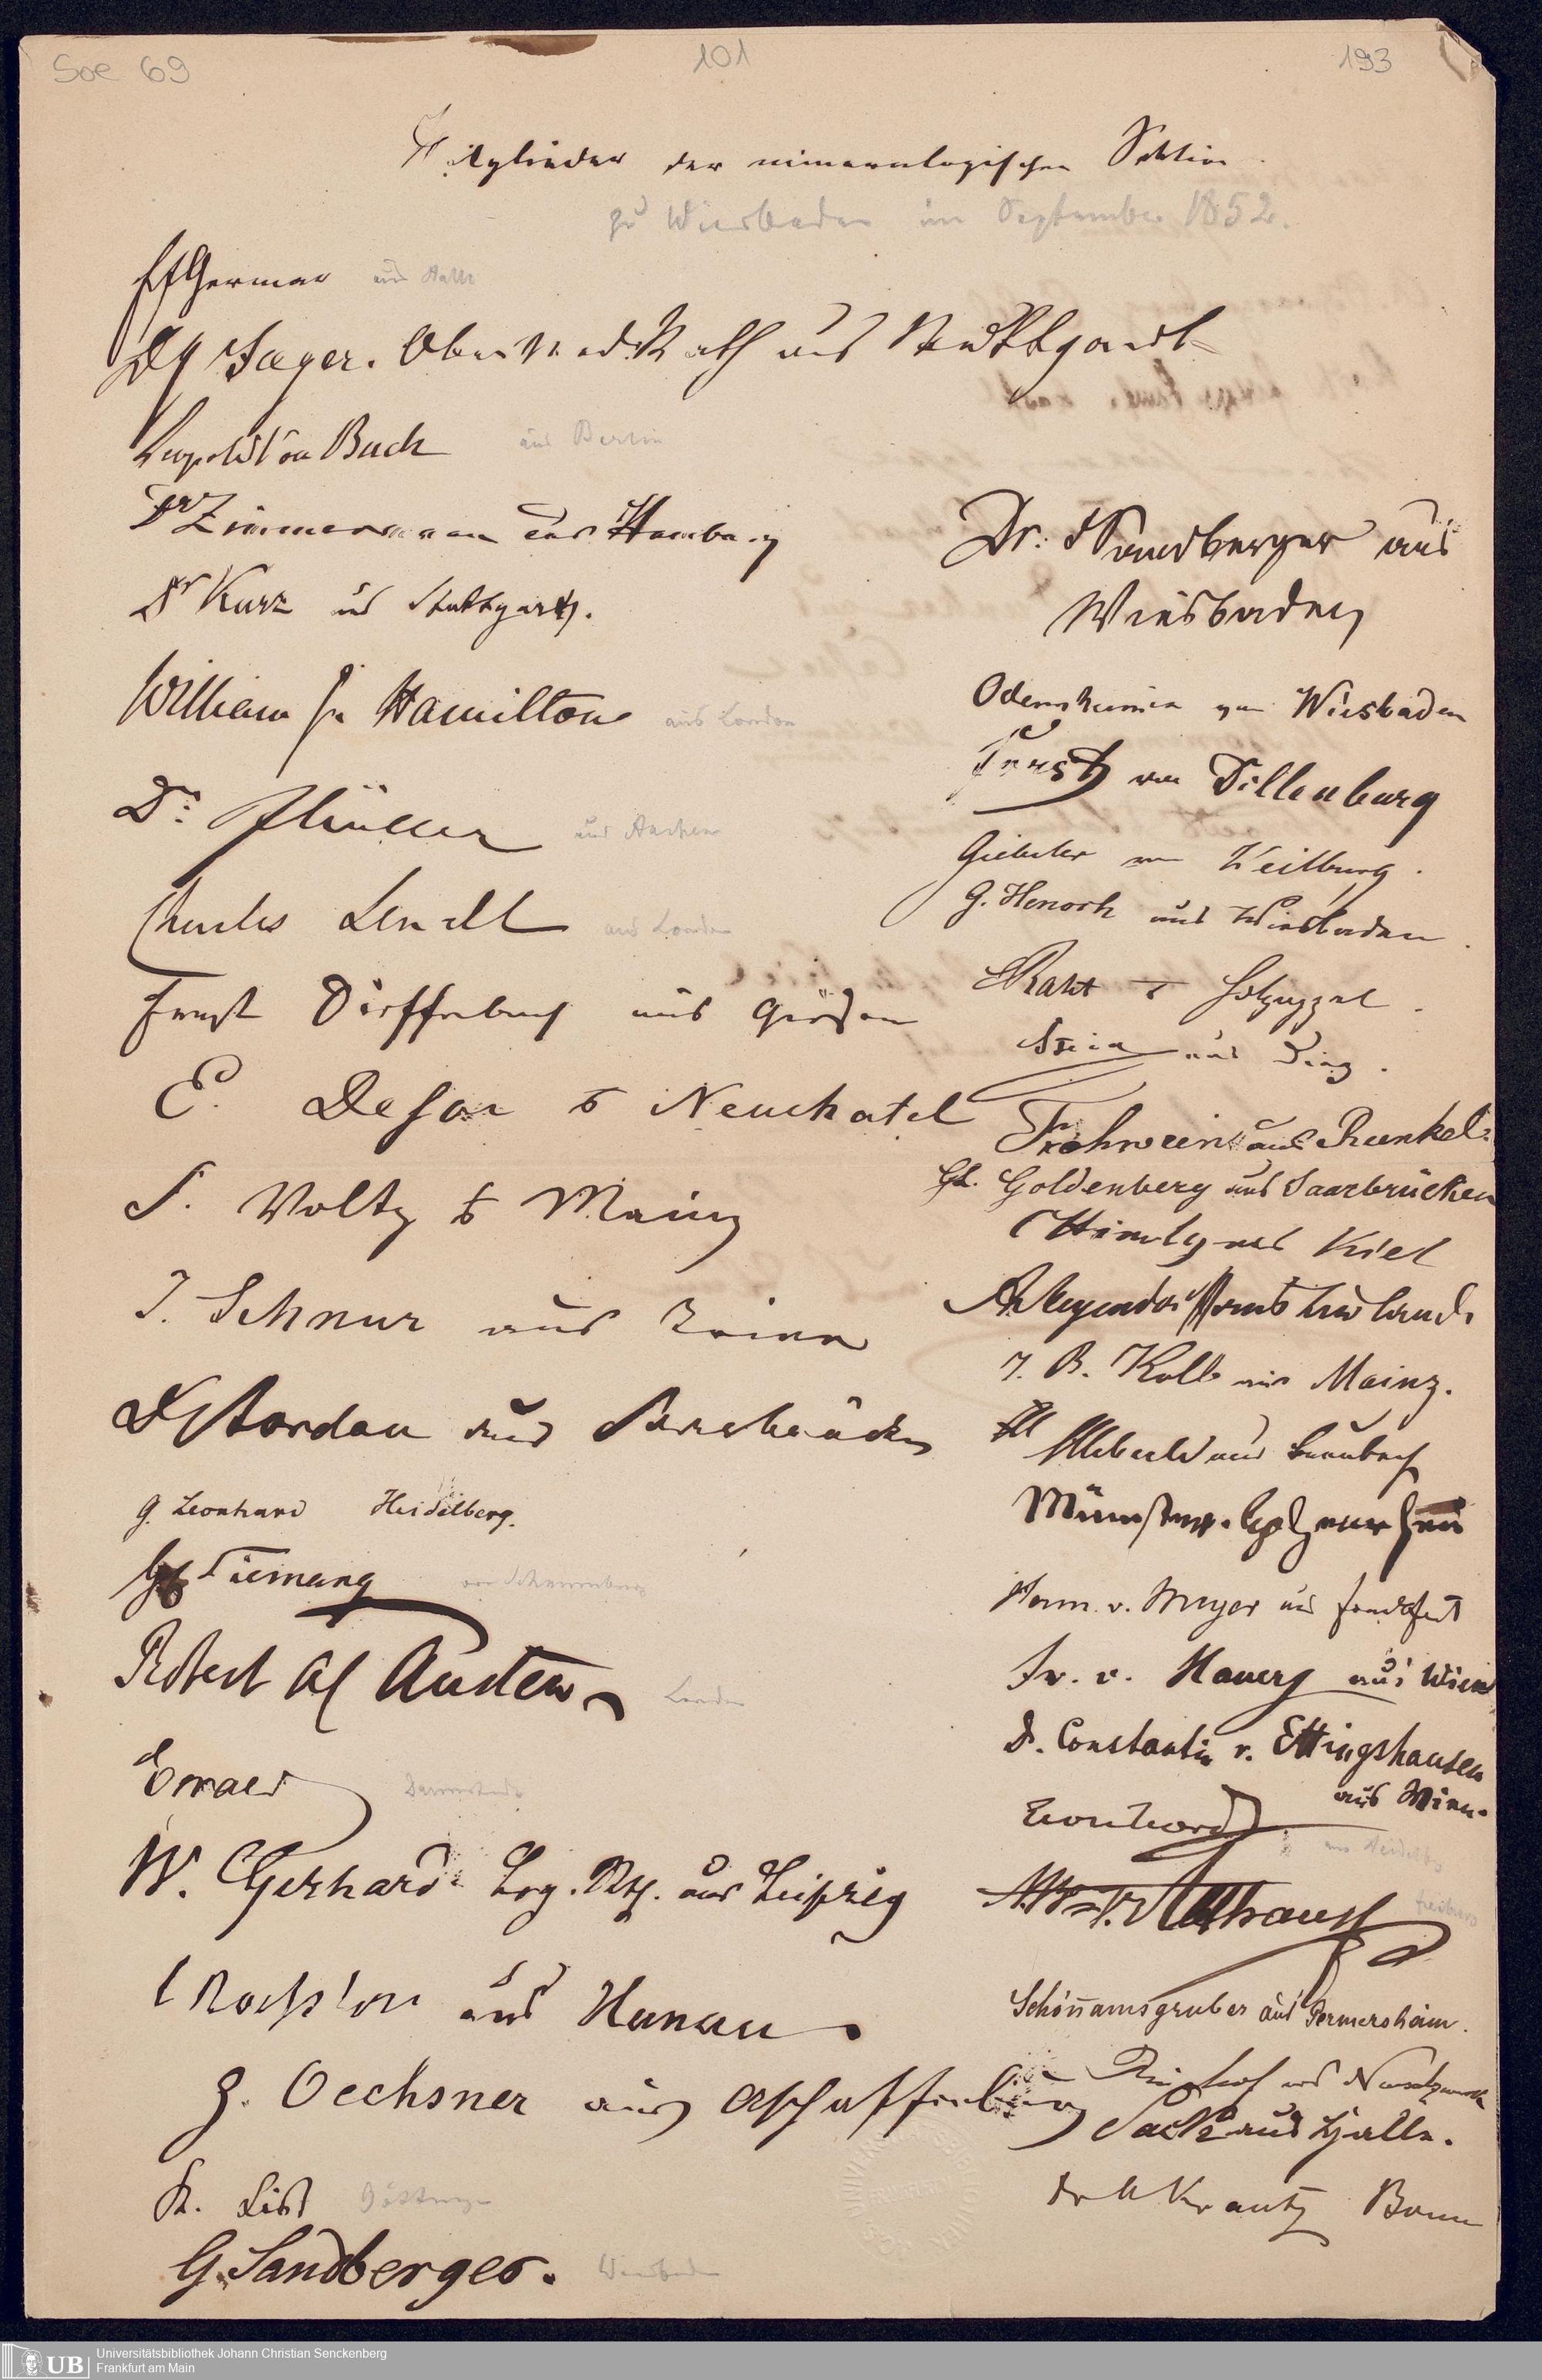 Soe 69
101
193
Mitglieder der mineralogischen Sektion
zu Wiesbaden im September 1852.
Germar aus Halle
Dr Jaeger. Ober Med Rath aus Stuttgardt
Leopold von Buch aus Berlin
Dr Zimmermann aus Hamburg
Dr Kurz aus Stuttgart.
William Jn Hamilton aus London
Dr. J Müller aus Aachen
Charles aus London
Ernst Dieffenbach aus Giessen
E. Desor v Neuchatel
F. Voltz v Mainz
J. Schnur aus Trier
Dr Jordan aus Saarbrücken
G. Leonhard Heidelberg.
Tiemang
Robert A C Austen London
Ewald Darmstadt
W. Gerhard Leg. Rth. aus Leipzig
C Roessler aus Hanau
G. Oechsner aus Aschaffenburg
K. List Göttingen
G. Sandberger. Wiesbaden
Dr. F Sandberger aus
Wiesbaden
Odernheimer von Wiesbaden
von Dillenburg
Giebeler von Weilburg.
G. Henoch aus Wiesbaden.
Raht v Holzappel.
Stein aus
Frohwein aus Runkel.
Goldenberg aus Saarbrücken
C Himly aus Kiel
aus
J. B. Kolb aus Mainz.
aus
Münster.
Herm. v. Meyer aus Frankfurt
Fr. v. Hauer aus Wien
Dr. Constantin v. Ettingshausen
aus Wien.
Leonhard aus Heidelbg
Althaus Freiburg
Schönnamsgruber aus Germersheim.
aus
Sack aus Halle.
Dr A Krantz Bonn
UB
Universitätsbibliothek Johann Christian Senckenberg
Frankfurt am Main